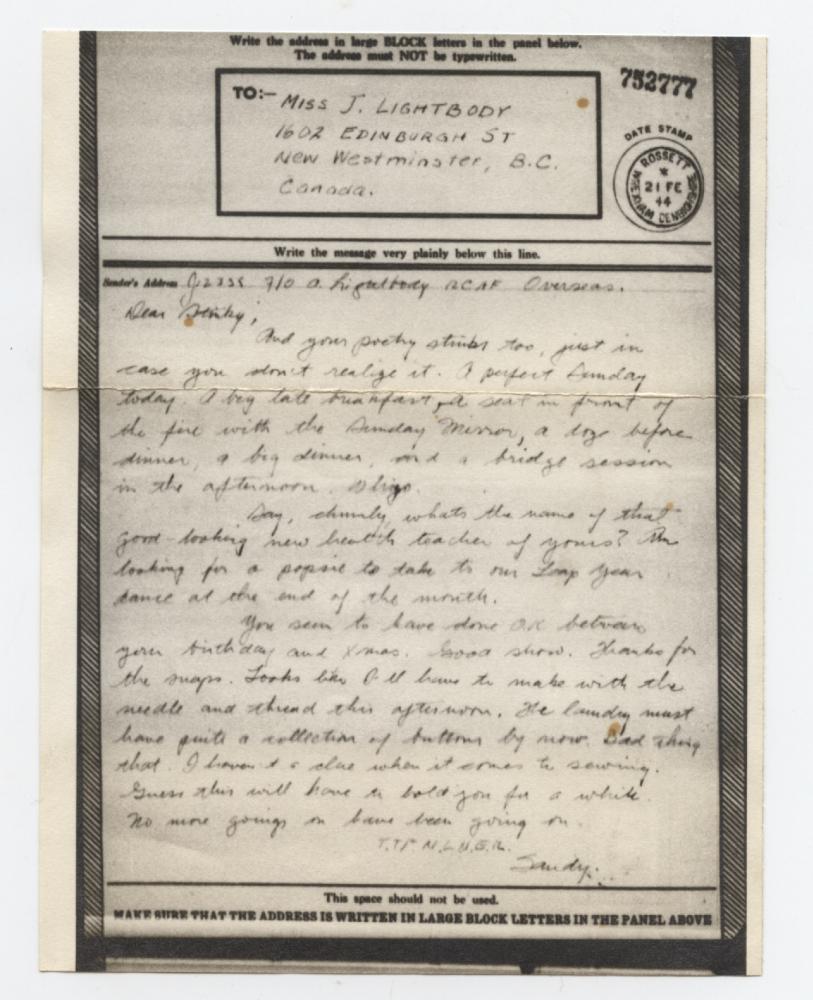 Write the address in large BLOCK letters in the panel below.
The address must NOT be typewritten.
752777
TO:- MISS J. LIGHTBODY
1602 EDINBURGH ST
New Westminster, B.C.
Canada.
DATE STAMP
ROSSETT
WREXHAM DENBIGHSHIRE
21 FE
44
Write the message very plainly below this line.
Sender's Address J2 F/O A. Lightbody RCAF Overseas.
Dear Stinky,
And your poetry stinks too, just in
case you don't realize it. A perfect Sunday
today. A big late breakfast, a seat in front of
the fire with the Sunday Mirror, a doze before
dinner, a big dinner, and a bridge session
in the afternoon.
Say, chumly, whats the name of that
good-looking new health teacher of yours? Am
looking for a popsie to take to our Leap Year
dance at the end of the month.
You seem to have done OK between
your birthday and Xmas. Good show. Thanks for
the snaps. Looks like I'll have to make with the
needle and thread this afternoon. The laundry must
have quite a collection of buttons by now. Bad thing
that. I haven't a clue when it comes to sewing.
Guess this will have to hold you for a while.
No more goings on have been going on.
Sandy.
This space should not be used.
MAKE SURE THAT THE ADDRESS IS WRITTEN IN LARGE BLOCK LETTERS IN THE PANEL ABOVE